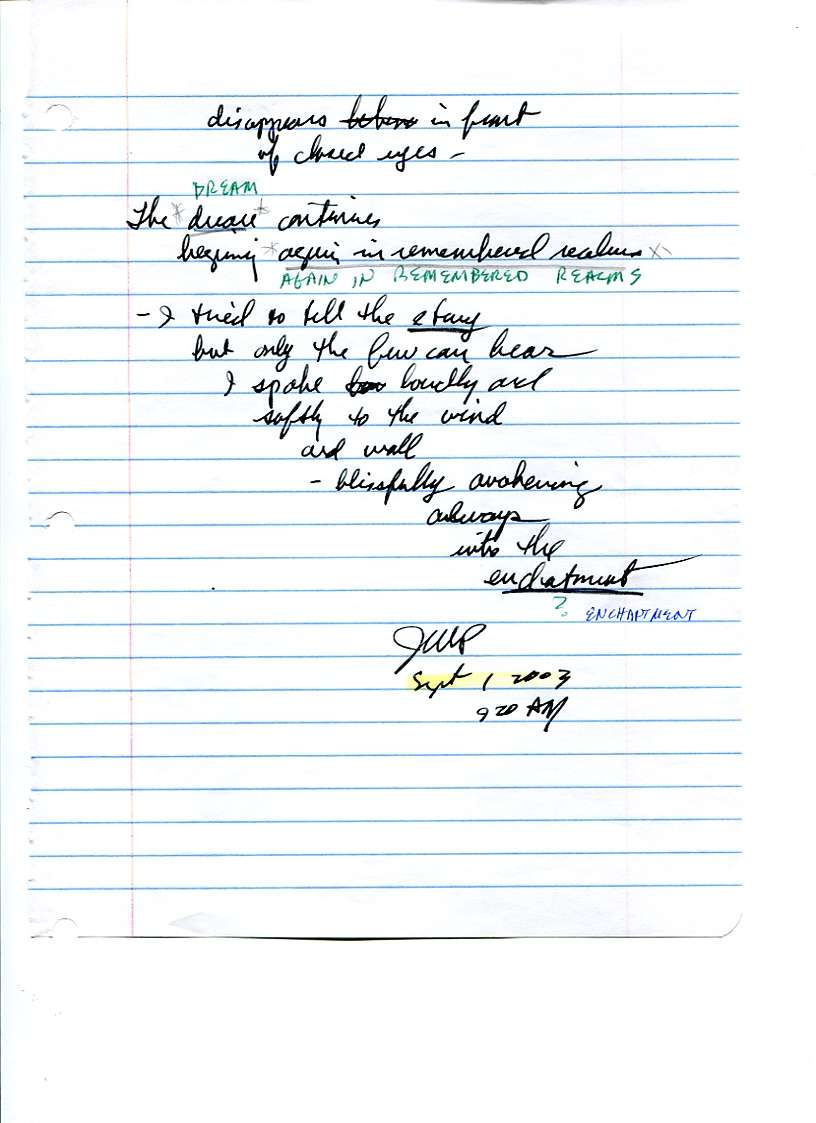 disappears before in front
of closed eyes -
DREAM
The *dream* continues
begining *again in remembered realms xx
AGAIN IN REMEMBERED REALMS
- I tried to tell the story
but only the few can hear
I spoke loudly and
softly to the wind
and wall
- blissfully awakening
always
into the
enchatment
? ENCHANTMENT
JWP
Sept 1 2003
920 AM